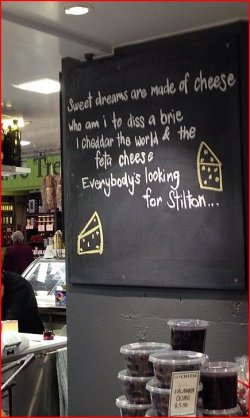 Sweet dreams are made of cheese
who am i to diss a brie
I cheddar the world & the
feta cheese
Everybody's looking
for Stilton...
KALAMATA
OLIVES